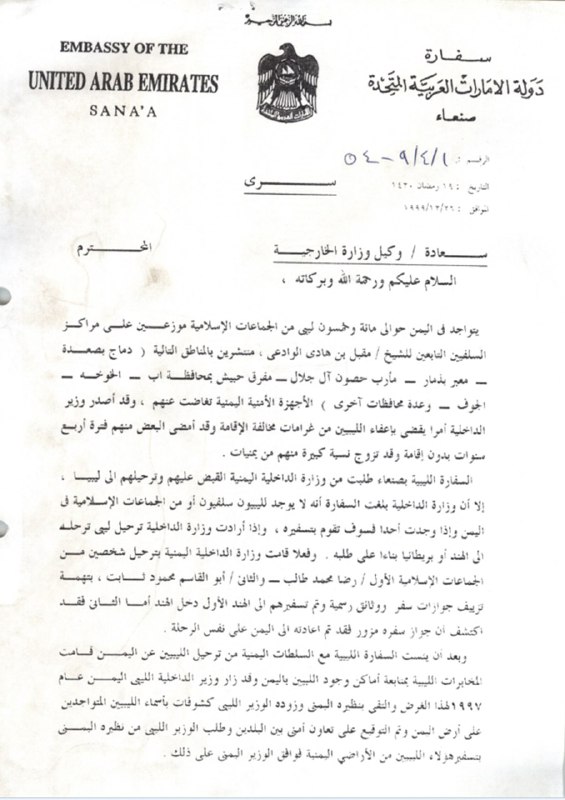 بسم الله الرحمن الرحيم
EMBASSY OF THE
UNITED ARAB EMIRATES
SANA'A
سفارة
دولة الامارات العربية المتحدة
صنعاء
الرقم : ٩/٤/١ - ٥٤
التاريخ : ١٩ رمضان ١٤٢٠
الموافق : ١٩٩٩/١٢/٢٦
سرى
سعادة / وكيل وزارة الخارجية المحترم
السلام عليكم ورحمة الله وبركاته ،
يتواجد فى اليمن حوالى مائة وخمسون ليبى من الجماعات الإسلامية موزعين على مراكز
السلفيين التابعين للشيخ / مقبل بن هادى الوادعى ، منتشرين بالمناطق التالية ( دماج بصعدة
ــ معبر بذمار ــ مأرب حصون آل جلال ــ مفرق حبيش بمحافظة اب ــ الخوخه ــ
الجوف ــ وعدة محافظات آخرى ) الأجهزة الأمنية اليمنية تغاضت عنهم ، وقد أصدر وزير
الداخلية أمرا يقضى بإعفاء الليبين من غرامات مخالفة الإقامة وقد أمضى البعض منهم فترة أربع
سنوات بدون إقامة وقد تزوج نسبة كبيرة منهم من يمنيات .
السفارة الليبية بصنعاء طلبت من وزارة الداخلية اليمنية القبض عليهم وترحيلهم الى ليبيا ،
إلا أن وزارة الداخلية بلغت السفارة أنه لا يوجد لليبيون سلفيون أو من الجماعات الإسلامية فى
اليمن وإذا وجدت أحدا فسوف تقوم بتسفيره ، وإذا أرادت وزارة الداخلية ترحيل ليبى ترحله
الى الهند أو بريطانيا بناءا على طلبه . وفعلا قامت وزارة الداخلية اليمنية بترحيل شخصين من
الجماعات الإسلامية الأول / رضا محمد طالب ــ والثانى / أبو القاسم محمود ثابت ، بتهمة
تزييف جوازات سفر ووثائق رسمية وتم تسفيرهم الى الهند الأول دخل الهند أما الثانى فقد
اكتشف أن جواز سفره مزور فقد تم اعادته الى اليمن على نفس الرحلة .
وبعد أن يئست السفارة الليبية مع السلطات اليمنية من ترحيل الليبين عن اليمن قامت
المخابرات الليبية بمتابعة أماكن وجود الليبين باليمن وقد زار وزير الداخلية الليبى اليمن عام
١٩٩٧ لهذا الغرض والتقى بنظيره اليمنى وزوده الوزير الليبى كشوفات بأسماء الليبين المتواجدين
على أرض اليمن وتم التوقيع على تعاون أمنى بين البلدين وطلب الوزير الليبى من نظيره اليمنى
بتسفيرهولاء الليبين من الأراضي اليمنية فوافق الوزير اليمنى على ذلك .